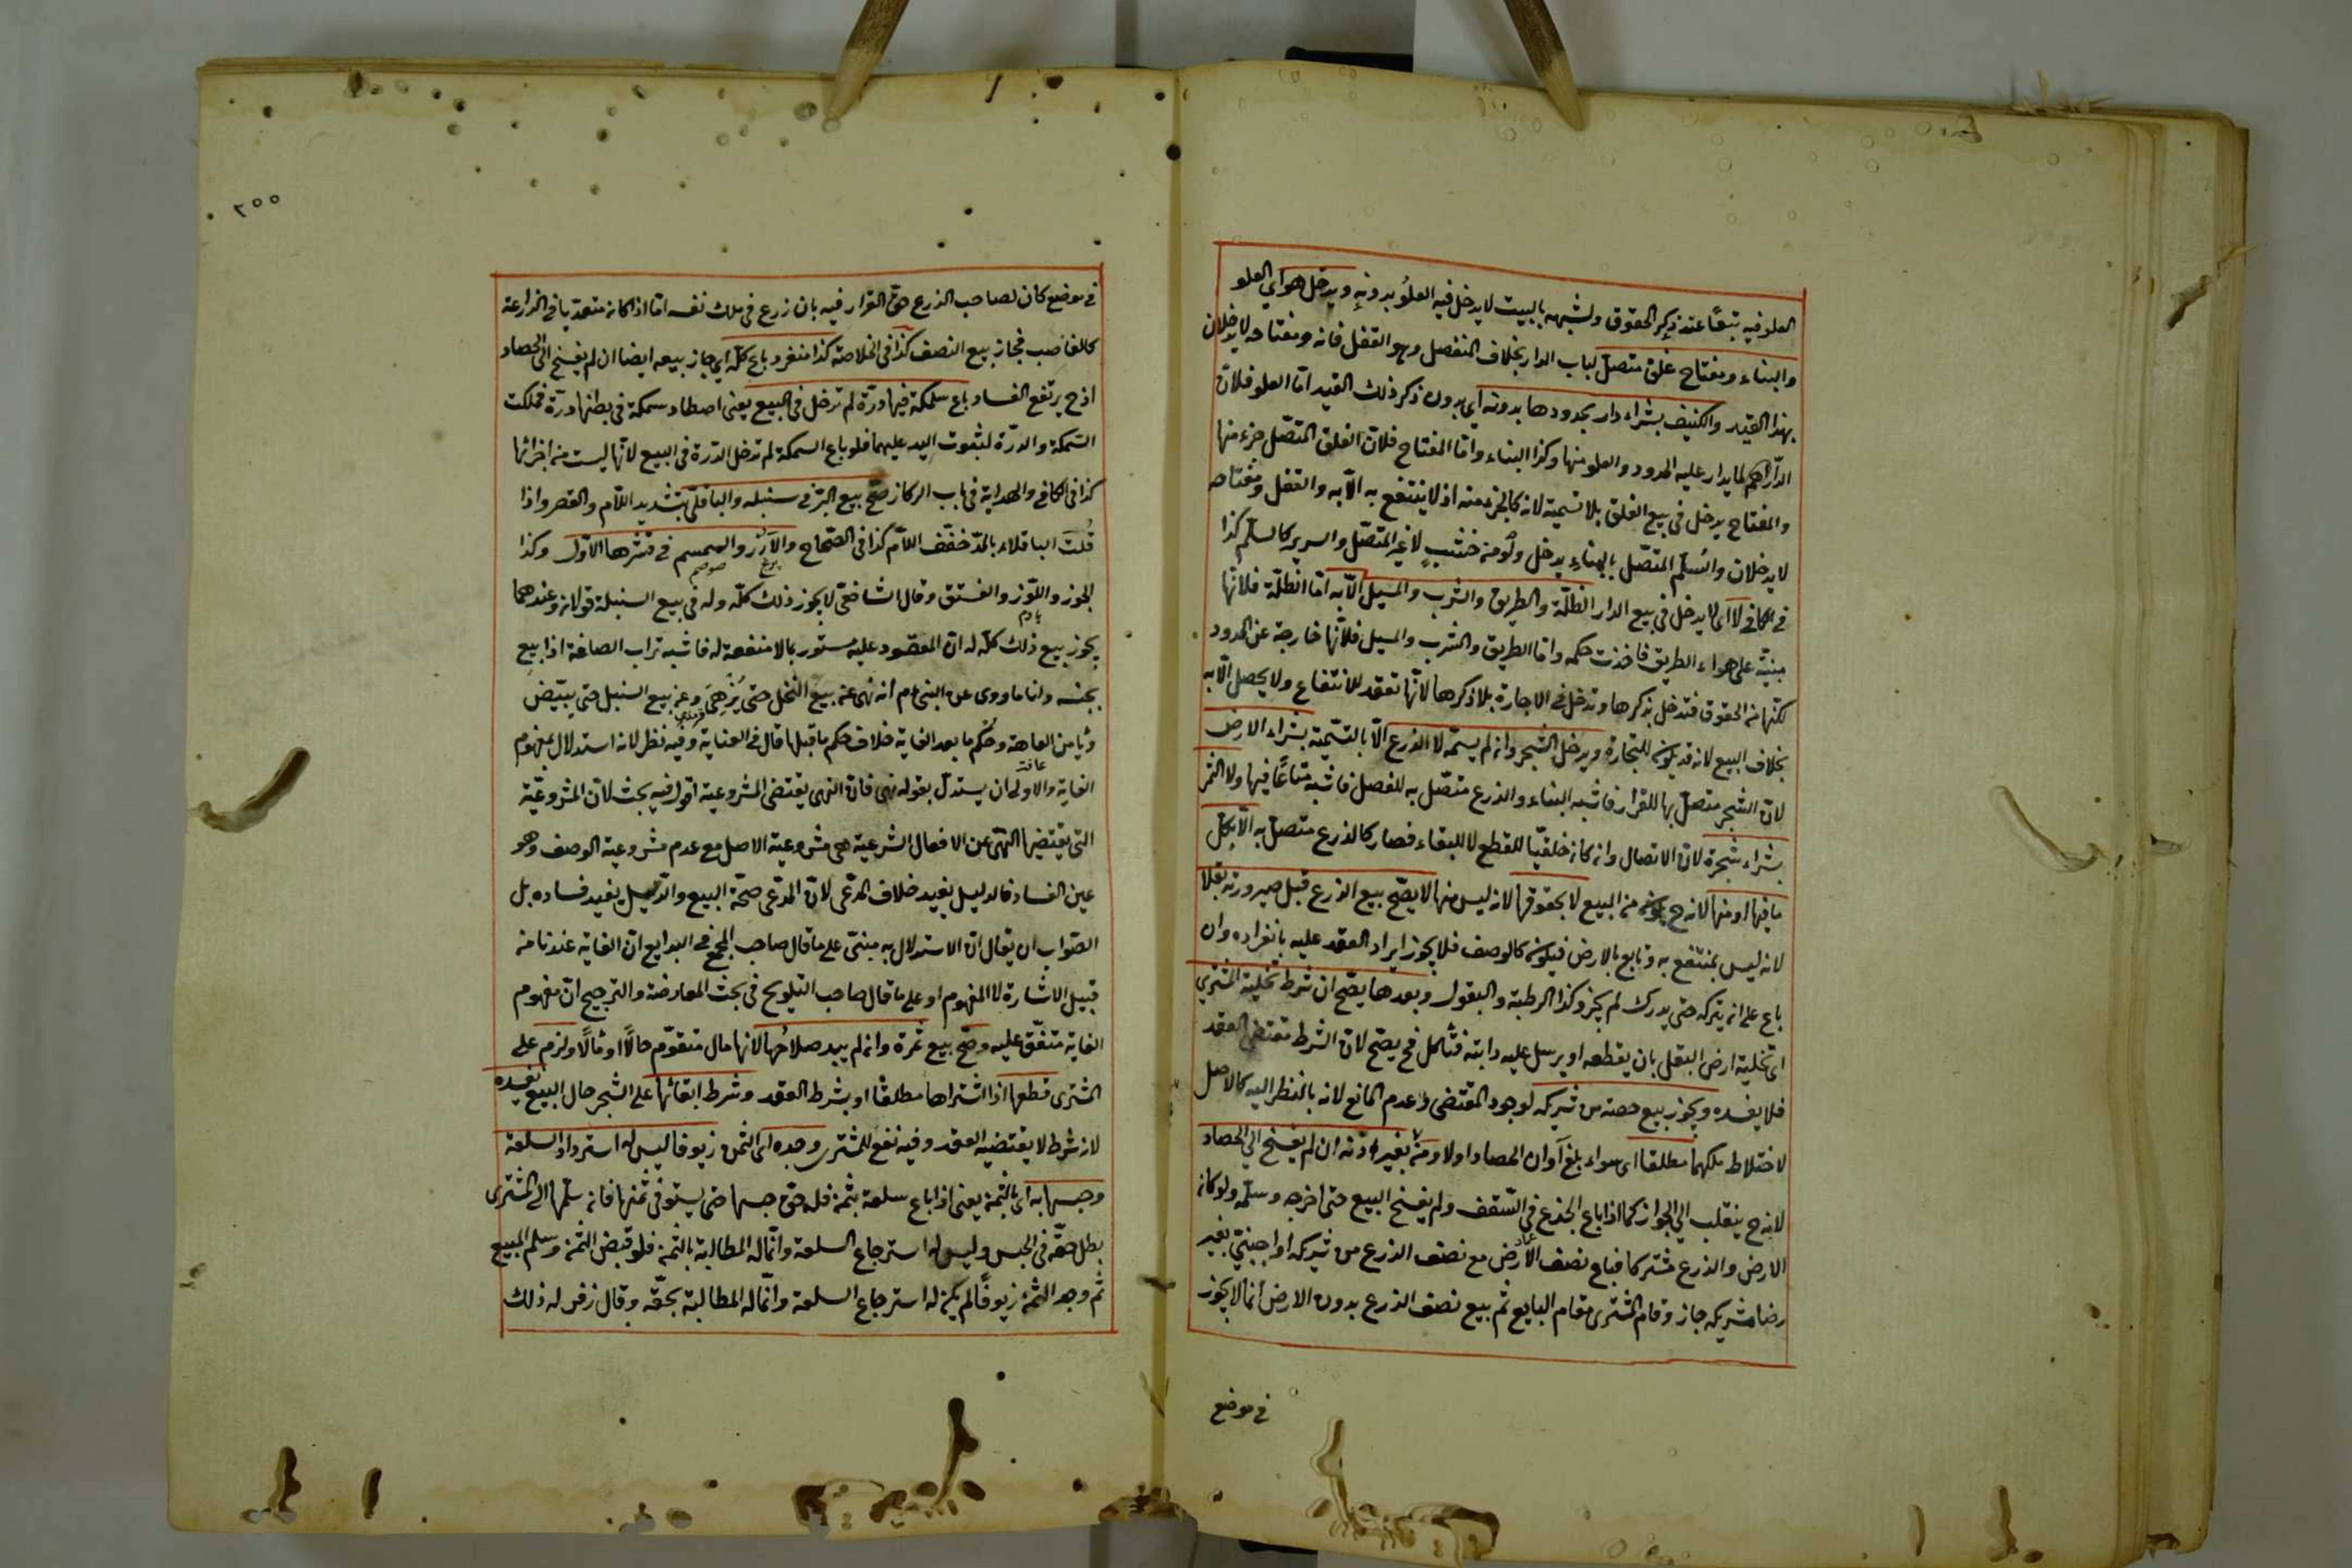 العلو فيه تبعًا عند ذكر الحقوق ولشبهه بالبيت لا يدخل فيه العلو بدونه ويدخل هو اي العلو
والبناء ومفتاح غلق متصل لباب الدار بخلاف المنفصل وهو القفل فانه ومفتاحه لا يدخلان
بهذا القيد والكنيف بشراء دار بحدودها بدونه اي بدون ذكر ذلك القيد امّا العلو فلانّ
الدّار اسم لما يدار عليه الحدود والعلو منها وكذا البناء وامّا المفتاح فلانّ الغلق المتصّل جزء منها
والمفتاح يدخل في بيع الغلق بلا تسمية لانه كالجزء منه اذ لا ينتفع به الّا به والقفل ومفتاحه
لا يدخلان والسُلّم المتصّل بالبناء يدخل ولو من خشبٍ لا غير المتصّل والسرير كالسلّم كذا
في الكافي لا اى لا يدخل في بيع الدار الظلّة والطريق والشرب والمسيل الّا به امّا الظلّة فلانّها
مبنيّة على هواء الطريق فاخذت حكمه وامّا الطريق والشرب والمسيل فلانّها خارجة عن الحدود
لكنّها من الحقوق فتدخل بذكرها وتدخل في الاجارة بلا ذكرها لانّها تعقد للانتفاع ولا يحصل الّا به
بخلاف البيع لانه قد يكون للتجارة ويدخل الشجر وان لم يسمّه لا الزرع الّا بالتسّمية بشراء الارض
لانّ الشجر متصلّ بها للقرار فاشبه البناء والزرع متصّل به للفصل فاشبه متاعًا فيها ولا الثمر
بشراء شجرة لانّ الاتصال وان كان خلقيّا للقطع لا للبقاء فصار كالزرع متصلّ به الّا بكلّ
ما فيها او منها لانه ح يكون من المبيع لا بحقوقها لانه ليس منها لا يصّح بيع الزرع قبل صيرورته بقلا
لانه ليس بمنتفع به وتابع بالارض فيكون كالوصف فلا يجوز ايراد العقد عليه بانفراده وان
باع على ان يتركه حتى يدرك لم يجز وكذا الرطبة والبقول وبعدها يصّح ان شرط تخلية المشترى
اى تخلية ارض البقل بان يقطعه او يرسل عليه دابته فتاكل فح يصّح لانّ الشرط مقتضى العقد
فلا يفسده ويجوز بيع حصته من شريكه لوجود المقتضى وعدم المانع لانه بالنظر اليه كالاصل
لاختلاط ملكهما مطلقا اى سواء بلغ آوان الحصاد اولا ومن غيره بغير اذنه ان لم يفسخ الى الحصاد
لانه ح ينقلب الى الجواز كما اذا باع الجذع في السّقف ولم يفسخ البيع حتى اخرجه وسلّمه ولو كان
الارض والزرع مشتركا فباع نصف الارض مع نصف الزرع من شريكه او اجنبيّ بغير
رضا شريكه جاز وقام المشترى مقام البايع ثم بيع نصف الزرع بدون الارض انما لا يجوز
في موضع
٢٥٥
في موضع كان لصاحب الزرع حق القرار فيه بان زرع في ملك نفسه امّا اذا كان متعدّيا في الزراعة
كالغاصب فجاز بيع النصف كذا في الخلاصة كذا منفرد باع كلّه اي جاز بيعه ايضا ان لم يفسخ الى الحصاد
اذ ح يرتفع الفساد باع سلمكة فيها درّة لم تدخل في البيع يعنى اصطاد سمكة في بطنها درّة فملكت
السّمكة والدرّة لثبوت اليد عليهما فلو باع السمكة لم تدخل الدّرة في البيع لانّها ليست من اجزائها
كذا في الكافي والهداية في باب الركاز صّح بيع البّر في سنبله والباقلّى بتشديد اللاّم والقصر واذا
قُلتَ الباقلاء بالمدّ خفّف اللاّم كذا في الصّحاح والاَرُزّ والسمسم في قشرها الاوّل وكذا
الجوز واللّوز والفستق وقال الشافعىّ لا يجوز ذلك كلّه وله في بيع السنبلة قولان وعندهما
بادم
يجوز بيع ذلك كلّه له انّ المعقود عليه مستور بما لا منفعة له فاشبه تراب الصاغة اذا بيع
بجنسه ولنا ما روى عن النبى ءم أنه نهى عن بيع النخل حتى يُزْهِىَ وعن بيع السنبل حتى يبيّض
ويأمن العاهة وحُكم ما بعد الغاية خلاف حكم ما قبلها قال في العناية وفيه نظر لانه استدلال بمفهوم
الغاية والاولى ان يستدلّ بقوله نهى فانّ النهى يقتضى المشروعية اقول فيه بحث لانّ المشروعيّة
التى يقتضيها النهّى عن الافعال الشرعية هى مشروعية الاصل مع عدم مشروعية الوصف وهو
عين الفساد فالدليل يفيد خلاف المدّعى لانّ المدّعى صحّة البيع والدّليل يفيد فساده بل
الصّواب ان يقال انّ الاستدلال به مبنىّ على ما قال صاحب المجمع في البدايع انّ الغاية عندنا من
قبيل الاشارة لا المفهوم او على ما قال صاحب التلويح في بحث المعارضة والترجيح انّ مفهوم
الغاية متفّق عليه وصّح بيع ثمرة وان لم يبد صلاحُها لانها مال متقوّم حالًا او مآلًا ولزم على
المشترى قطعها اذا اشتراها مطلقًا او بشرط العقد وشرط ابقائها على الشجر حال البيع يفسده
لانه شرط لا يقتضيه العقد وفيه نفع للمشترى وجده اى الثمن زيوفا ليس له استرداد السلعة
وحبسها به اى بالثمن يعنى اذا باع سلعة بثمن فله حقّ حبسها حتى يستوفى ثمنها فان سلّمها الى المشترى
بطل حقّه في الحبس وليس له استرجاع السلعة وانّما له المطالبة بالثمن فلو قبض الثمن وسلم المبيع
ثم وجد الثمن زيوفًا لم يكن له استرجاع السلعة وانّما له المطالبة بحقّه وقال زفر له ذلك